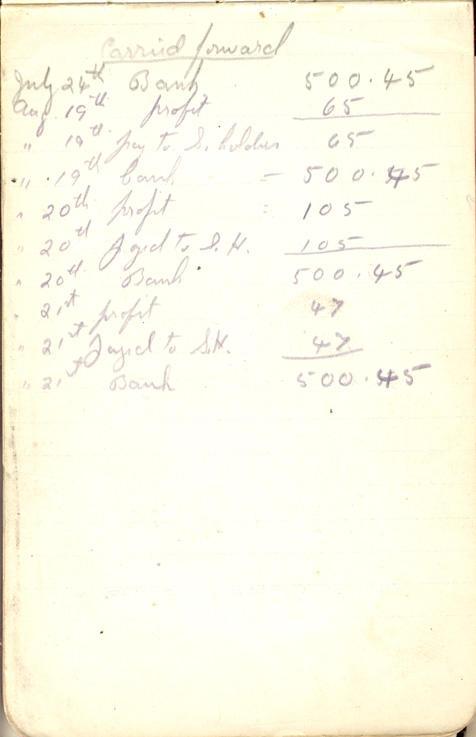 Carried forward
July 24th Bank 500.45
Aug 19th profit 65
" 19th pay to S. holders 65
" 19th bank = 500.45
" 20th profit = 105
" 20th payed to S.H. 105
" 20th Bank 500.45
" 21st profit 47
" 21st payed to S.H. 47
" 21st Bank 500.45